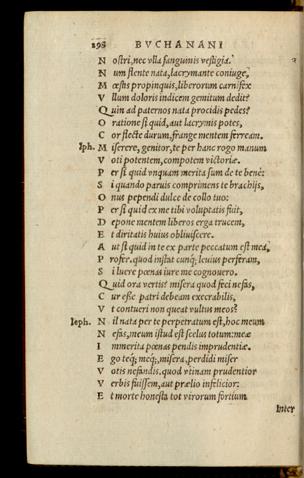 298 BVCHANANI
N ostri, nec vlla sanguinis vestigia.
N um flente nata, lacrymante coniuge,
M œstis propinquis, liberorum carnifex
V llum doloris indicem gemitum dedit?
Q uin ad paternos nata procidis pedes?
O ratione si quid, aut lacrymis potes,
C or flecte durum, frange mentem ferream.
Iph. M iserere, genitor, te per hanc rogo manum
V oti potentem, compotem victoriæ.
P er si quid vnquam merita sum de te benè:
S i quando paruis comprimens te brachijs,
O nus pependi dulce de collo tuo:
P er si quid ex me tibi voluptatis fuit,
D epone mentem liberos erga trucem,
E t diritatis huius obliuiscere.
A ut si quid in te ex parte peccatum est mea,
P rofer. quod instat cunq; leuius perferam,
S i luere pœnas iure me cognouero.
Q uid ora vertis? misera quod feci nefas,
C ur esse patri debeam execrabilis,
V t contueri non queat vultus meos?
Ieph. N il nata per te perpetratum est, hoc meum
N efas, meum istud est scelus totum: meæ
I mmerita pœnas pendis imprudentiæ.
E go teq; meq;, misera, perdidi miser
V otis nefandis. quod vtinam prudentior
V erbis fuissem, aut prælio infelicior:
E t morte honesta tot virorum fortium
Inter